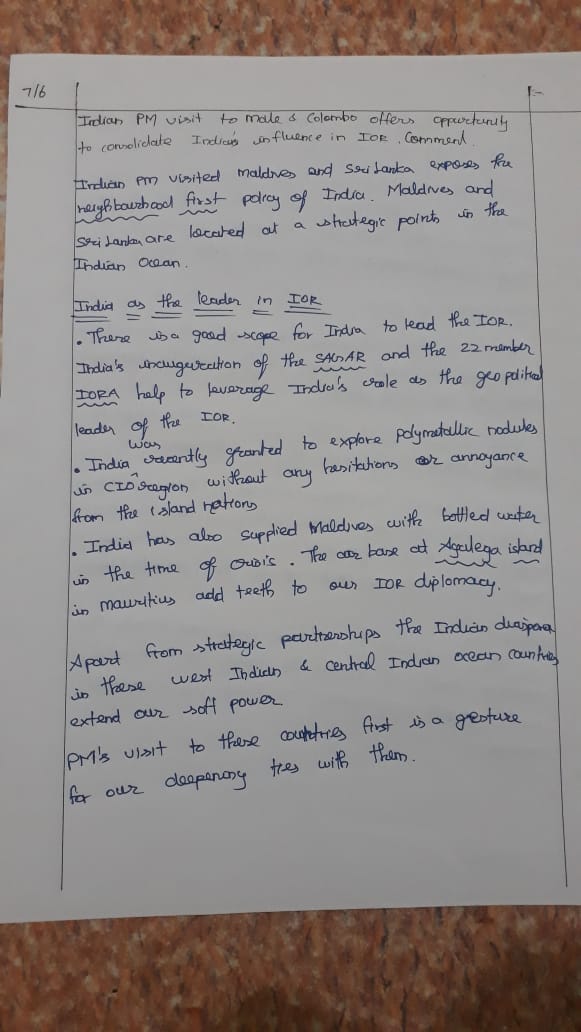 7/6
Indian PM visit to male & Colombo offers oppurtunity
to consolidate India's influence in IOR. Comment.
Indian PM visited maldives and Sri Lanka exposes the
neighbourhood first policy of India. Maldives and
Sri Lanka are located at a strategic points in the
Indian Ocean.
India as the leader in IOR
• There is a good scope for India to lead the IOR.
India's inauguration of the SAGAR and the 22 member
IORA help to leverage India's role as the geo political
leader of the IOR.
• India was recently granted to explore polymetallic nodules
in CIO region without any hesitations or annoyance
from the island nations
• India has also supplied Maldives with bottled water
in the time of crisis. The our base at Agalega island
in mauritius add teeth to our IOR diplomacy.
Apart from strategic partnerships the Indian diaspora
in these west Indian & central Indian ocean countries
extend our soft power
PM's visit to these countries first is a gesture
for our deepening ties with them.